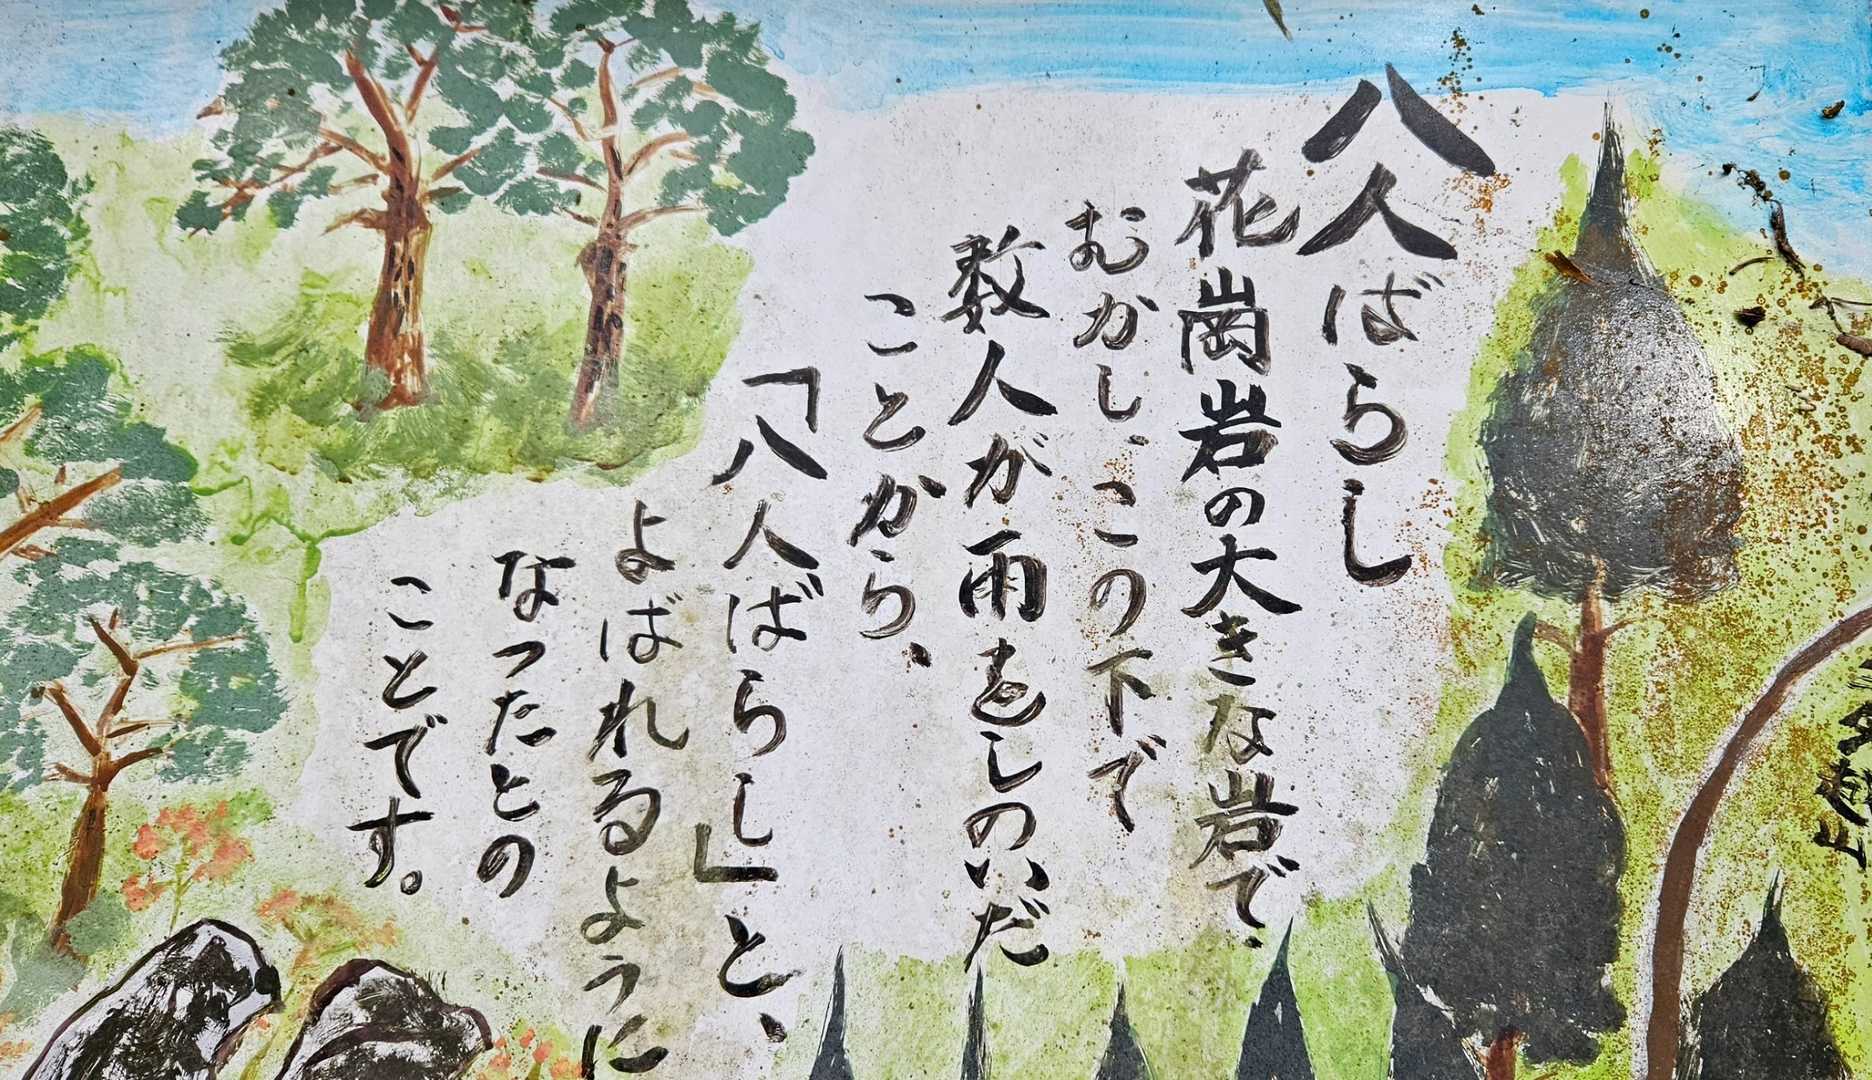 八人ばらし
花崗岩の大きな岩で、
むかし、この下で
数人が雨をしのいだ
ことから、
「八人ばらし」と、
よばれるように
なったとの
ことです。